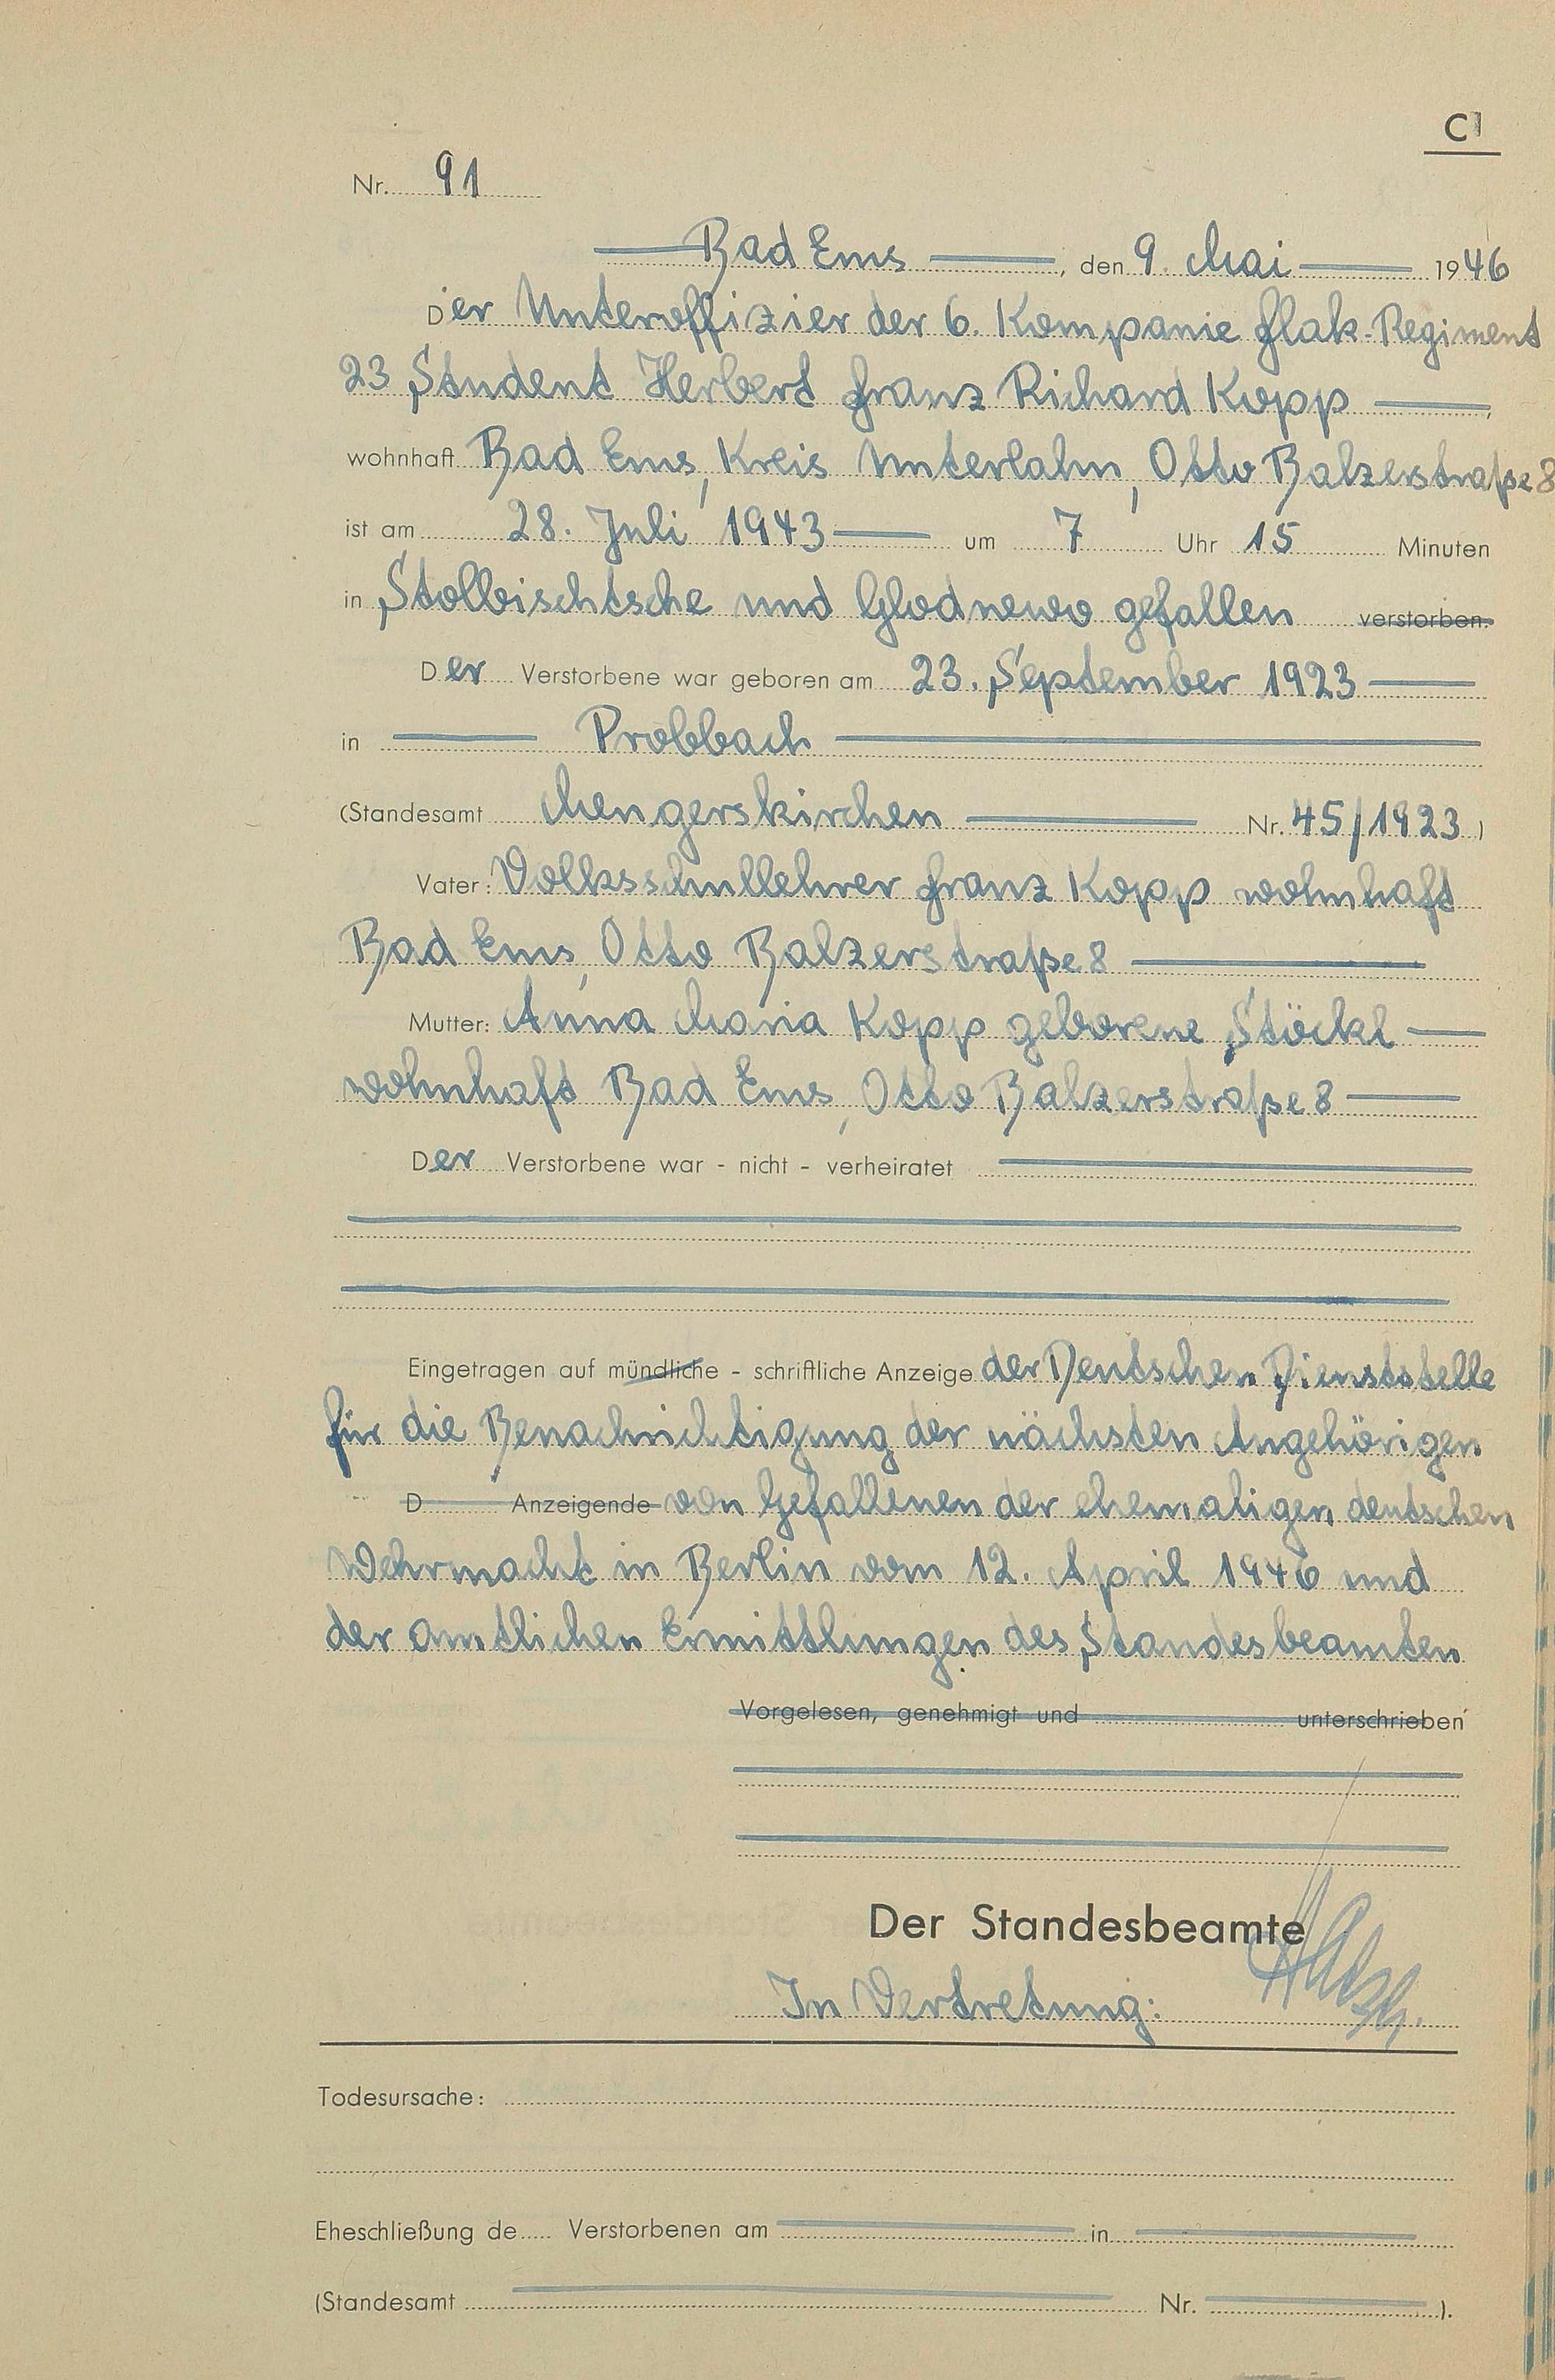 C
Nr. 91
Bad Ems, den 9. Mai 1946
Der Unteroffizier der 6. Kompanie Flak-Regiment
23 Student Herbert Franz Richard Kopp,
wohnhaft Bad Ems, Kreis Unterlahn, Otto Balzerstraße 8
ist am 28. Juli 1943 um 7 Uhr 15 Minuten
in Stolbischtsche und Glodnewo gefallen verstorben.
Der Verstorbene war geboren am 23. September 1923
in Probbach
(Standesamt Mengerskirchen Nr. 45/1923)
Vater: Volksschullehrer Franz Kopp wohnhaft
Bad Ems, Otto Balzerstraße 8
Mutter: Anna Maria Kopp geborene Stöckl
wohnhaft Bad Ems, Otto Balzerstraße 8
Der Verstorbene war - nicht - verheiratet
Eingetragen auf mündliche - schriftliche Anzeige der Deutschen Dienststelle
für die Benachrichtigung der nächsten Angehörigen
D Anzeigende von Gefallenen der ehemaligen deutschen
Wehrmacht in Berlin vom 12. April 1946 und
der amtlichen Ermittlungen des Standesbeamten
Vorgelesen, genehmigt und unterschrieben
Der Standesbeamte
In Vertretung:
Todesursache:
Eheschließung de Verstorbenen am in
(Standesamt Nr. ).